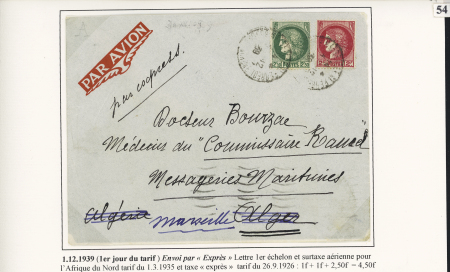 54
PAR AVION
par exprès.
POSTES
POSTES
Docteur Bourzac
Médecin du "Commissaire Ramel"
Messageries Maritimes
Algérie Marseille Alger
1.12.1939 (1er jour du tarif ) Envoi par « Exprès » Lettre 1er échelon et surtaxe aérienne pour
l'Afrique du Nord tarif du 1.3.1935 et taxe «exprès » tarif du 26.9.1926 : 1f + 1f + 2,50f = 4,50f